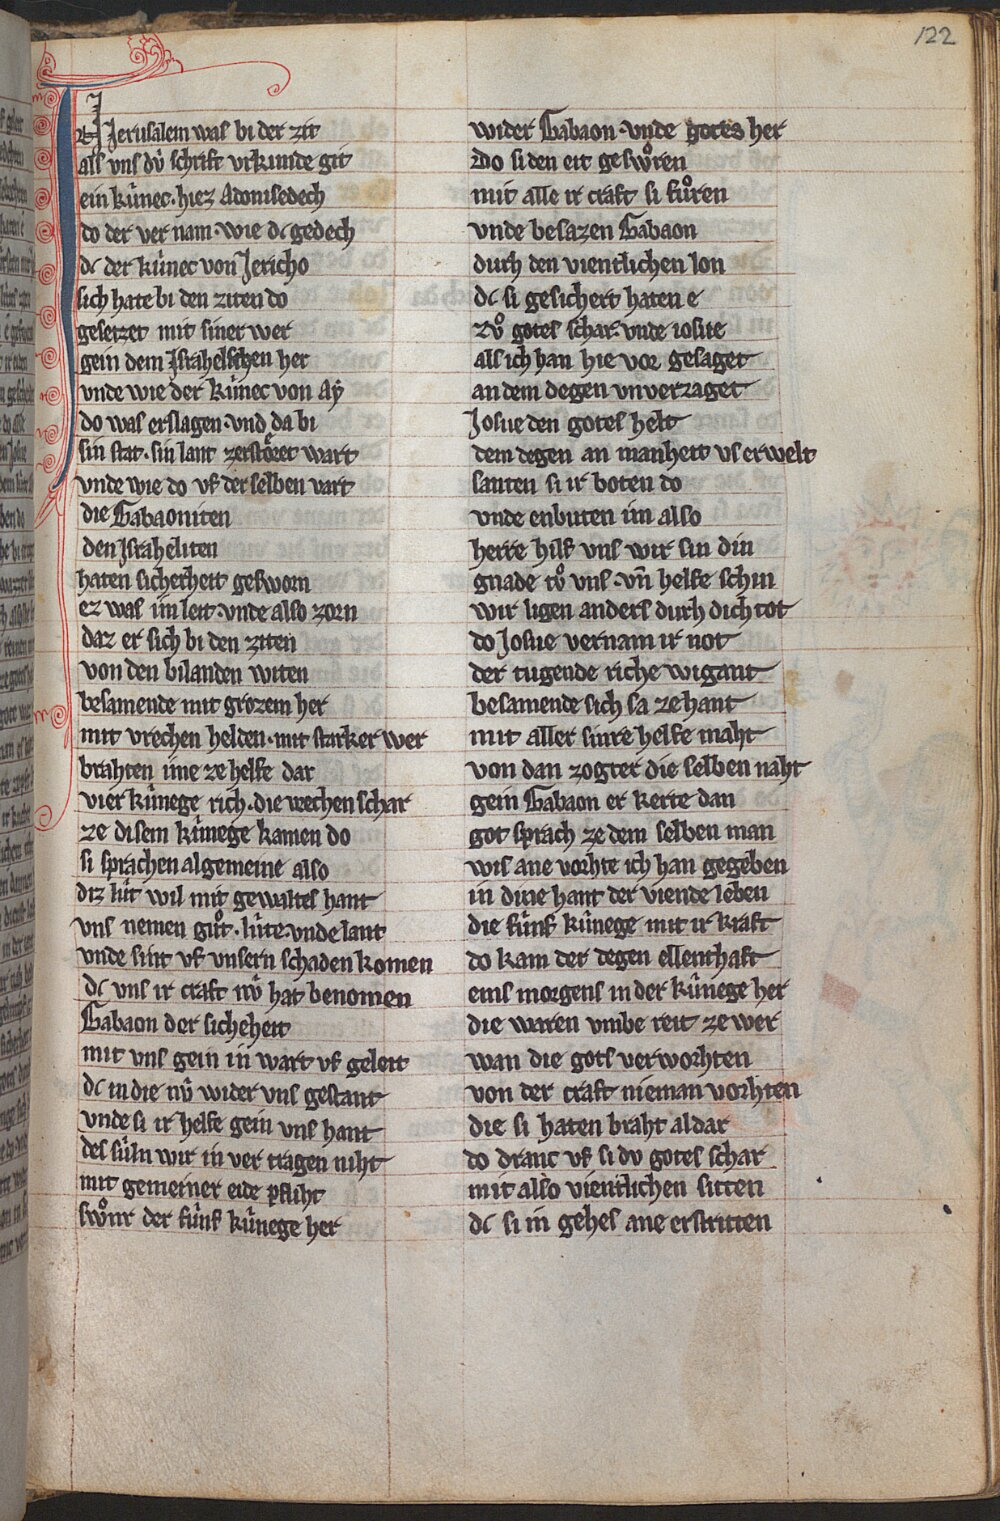 122
Jn Jerusalem was bi der zit
als vns dv̂ schrift vrkunde git
ein kv̂nec · hiez Adonisedech
do der ver nam · wie dc gedech
dc der kv̂nec von Jericho
sich hate bi den ziten do
gesetzet mit siner wer
gein dem Jsrahelschen her
vnde wie der kv̂nec von Aẏ
do was erslagen · vnd da bi
sin stat · sin lant zerstôret wart
vnde wie do vf der selben vart
die Gabaoniten
den Jsraheliten
haten sicherheit gesworn
ez was im leit · vnde also zorn
daz er sich bi den ziten
von den bilanden witen
besamende mit grozem her
mit vrechen helden · mit starker wer
brahten ime ze helfe dar
vier kv̂nege rich · die wechen schar
ze disem kv̂nege kamen do
si sprachen algemeine also
diz lv̂t wil mit gewaltes hant
vns nemen gůt · lv̂te · vnde lant
vnde sint vf vnsern schaden komen
dc vns ir craft nv̂ hat benomen
Gabaon der sicheheit
mit vns gein in wart vf geleit
dc in die nv̂ wider vns gestant
vnde si ir helfe gein vns hant
des sv̂ln wir in ver tragen niht
mit gemeiner eide pfliht
swůr der fv̂nf kv̂nege her
wider Gabaon · vnde gotes her
Do si den eit geswůren
mit alle ir craft si fůren
vnde besazen Gabaon
durh den vientlichen lon
dc si gesichert haten e
zů gotes schar · vnde iosue
als ich han hie vor gesaget
an dem degen vnverzaget
Josue den gotes helt
dem degen an manheit vs erwelt
santen si ir boten do
vnde enbuten im also
herre hilf vns wir sin din
gnade tů vns · vn̄ helfe schin
wir ligen anders durh dich tot
do Josue vernam ir not
der tugende riche wigant
besamende sich sa ze hant
mit aller sinre helfe maht
von dan zogter die selben naht
gein Gabaon er kerte dan
got sprach ze dem selben man
wis ane vorhte ich han gegeben
in dine hant der viende leben
die fv̂nf kv̂nege mit ir kraft
do kam der degen ellenthaft
eins morgens in der kv̂nege her
die waren vmbe reit ze wer
wan die gots verworhten
von der craft nieman vorhten
die si haten braht al dar
do dranc vf si dv gotes schar
mit also vientlichen sitten
dc si in gehes ane erstritten